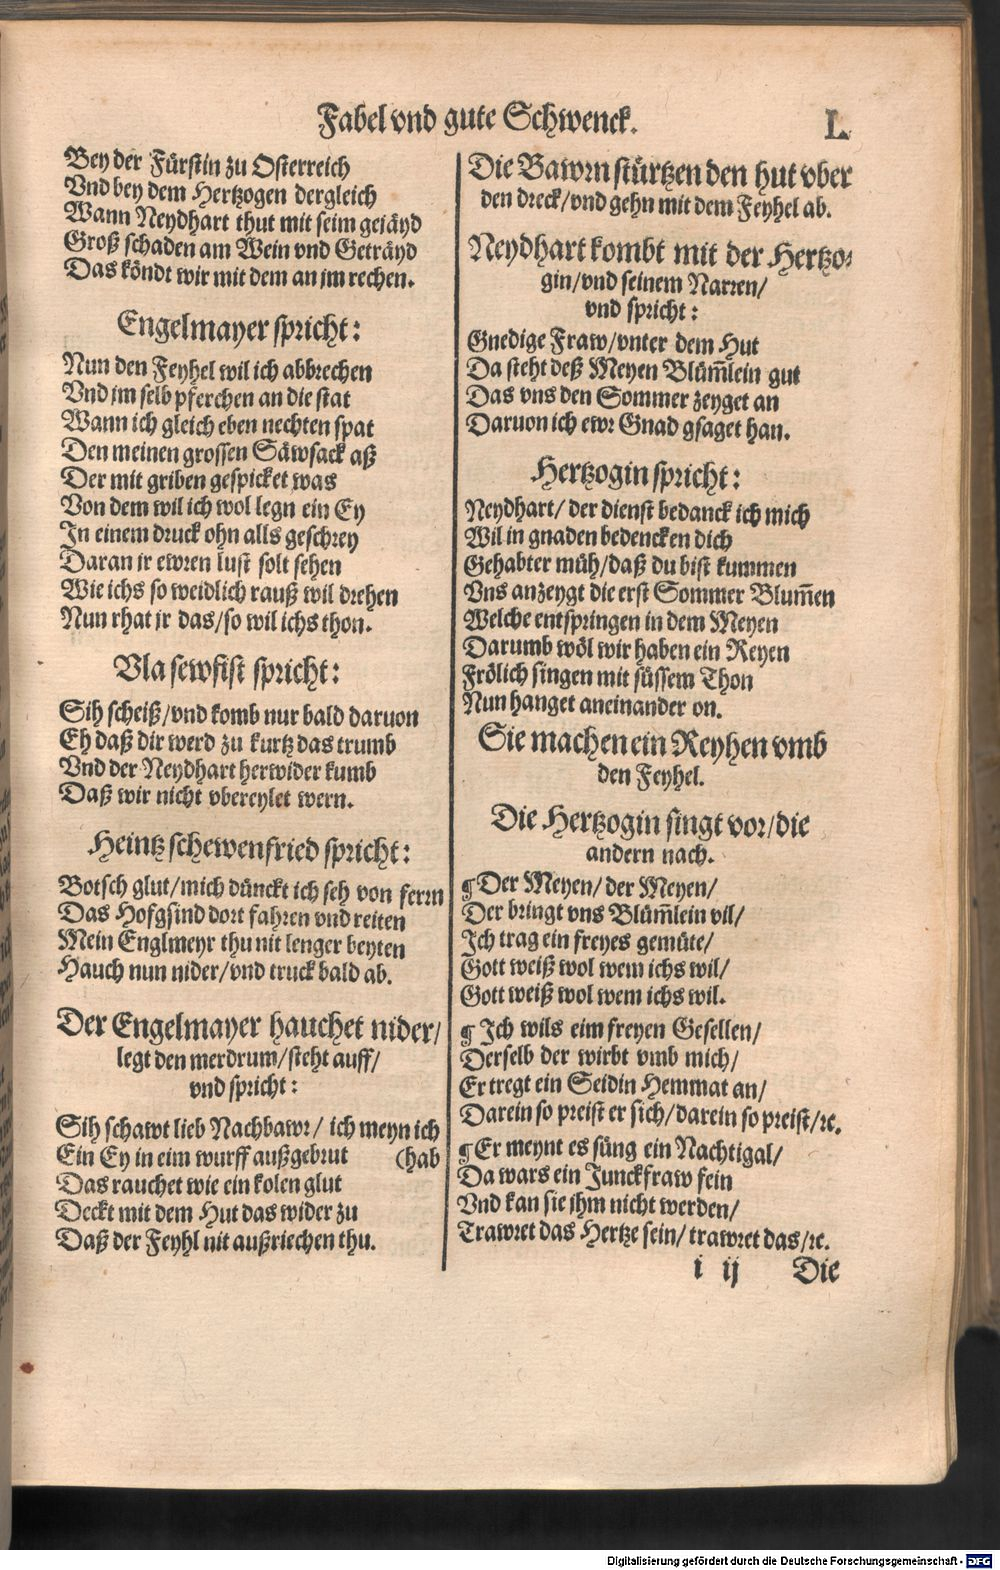 Fabel vnd gute Schwenck.
L
Bey der Fürstin zu Osterreich
Vnd bey dem Hertzogen dergleich
Wann Neydhart thut mit seim gejäyd
Groß schaden am Wein vnd Geträyd
Das köndt wir mit dem an jm rechen.
Engelmayer spricht:
Nun den Feyhel wil ich abbrechen
Vnd jm selb pferchen an die stat
Wann ich gleich eben nechten spat
Den meinen grossen Säwsack aß
Der mit griben gespicket was
Von dem wil ich wol legn ein Ey
In einem druck ohn alls geschrey
Daran jr ewren lust solt sehen
Wie ichs so weidlich rauß wil drehen
Nun rhat jr das/so wil ichs thon.
Vla sewfist spricht:
Sih scheiß/vnd komb nur bald daruon
Eh daß dir werd zu kurtz das trumb
Vnd der Neydhart herwider kumb
Daß wir nicht vbereylet wern.
Heintz schewenfried spricht:
Botsch glut/mich dünckt ich seh von ferrn
Das Hofgsind dort fahren vnd reiten
Mein Englmeyr thu nit lenger beyten
Hauch nun nider/vnd truck bald ab.
Der Engelmayer hauchet nider/
legt den merdrum/steht auff/
vnd spricht:
Sih schawt lieb Nachbawr/ ich meyn ich
Ein Ey in eim wurff außgebrut (hab
Das rauchet wie ein kolen glut
Deckt mit dem Hut das wider zu
Daß der Feyhl nit außriechen thu.
Die Bawrn stürtzen den hut vber
den dreck/vnd gehn mit dem Feyhel ab.
Neydhart kombt mit der Hertzo-
gin/vnd seinem Narren/
vnd spricht:
Gnedige Fraw/vnter dem Hut
Da steht deß Meyen Blüm̄lein gut
Das vns den Sommer zeyget an
Daruon ich ewr Gnad gsaget han.
Hertzogin spricht:
Neydhart/ der dienst bedanck ich mich
Wil in gnaden bedencken dich
Gehabter müh/daß du bist kummen
Vns anzeygt die erst Sommer Blum̄en
Welche entspringen in dem Meyen
Darumb wöl wir haben ein Reyen
Frölich singen mit süssem Thon
Nun hanget aneinander on.
Sie machen ein Reyhen vmb
den Feyhel.
Die Hertzogin singt vor/die
andern nach.
¶ Der Meyen/ der Meyen/
Der bringt vns Blüm̄lein vil/
Ich trag ein freyes gemüte/
Gott weiß wol wem ichs wil/
Gott weiß wol wem ichs wil.
¶ Ich wils eim freyen Gesellen/
Derselb der wirbt vmb mich/
Er tregt ein Seidin Hemmat an/
Darein so preist er sich/darein so preist/ꝛc.
¶ Er meynt es süng ein Nachtigal/
Da wars ein Junckfraw fein
Vnd kan sie jhm nicht werden/
Trawret das Hertze sein/ trawret das/ꝛc.
i ij Die
Digitalisierung gefördert durch die Deutsche Forschungsgemeinschaft - DFG